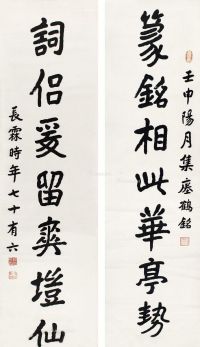 壬申陽月集瘞鶴銘
篆銘相此華亭勢
詞侶爰留爽塏仙
長霖時年七十有六